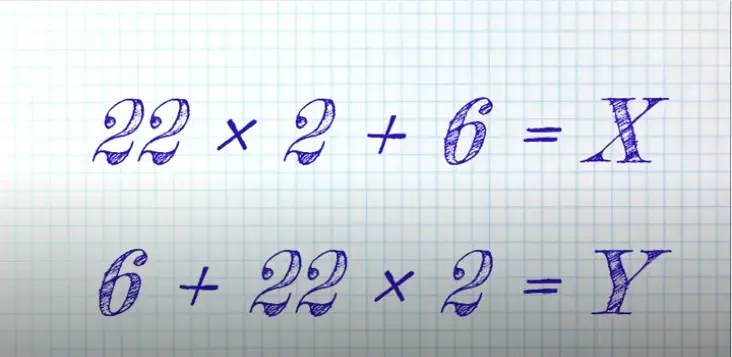 22 × 2 + 6 = X
6 + 22 × 2 = Y